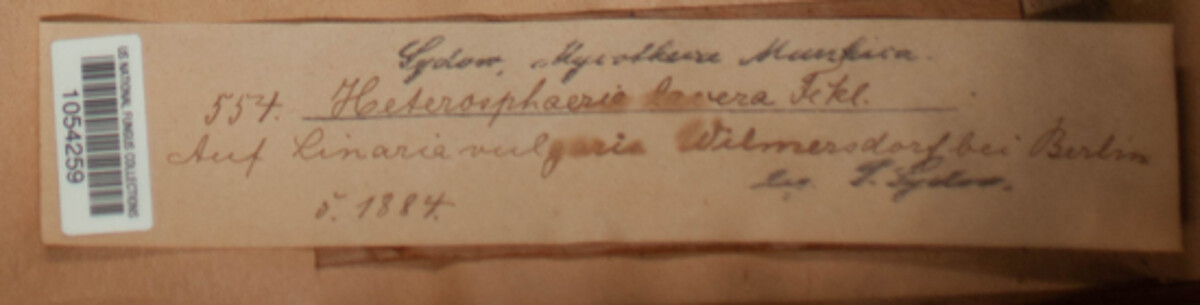 US NATIONAL FUNGUS COLLECTIONS
1054259
Sydow, Mycotheca Marchica.
554. Heterosphaeria Fckl.
Auf Linaria vulgaris Wilmersdorf bei Berlin
P. Sydow.
5. 1884.